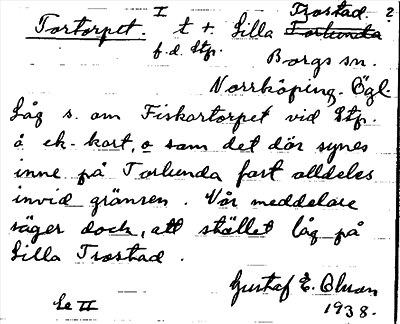 Trostad ?
Tortorpet. I t. t. Lilla Torlunda
f.d. Stp.
Borgs sn.
Norrköping. Ögl.
Låg s. om Fiskartorpet vid Stp.
å ek. kart, o som det där synes
inne på Torlunda fast alldeles
invid gränsen. Vår meddelare
säger dock, att stället låg på
Lilla Trostad.
Gustaf E. Olsson
Le II 1938.